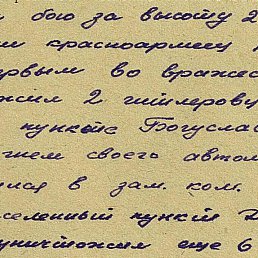 бою за высоту 2
красноармеец
первым во вражес
2 гитлеровц
пункте Богуслав
огнем своего автом
в зам. ком.
селенный пункт
уничтожил еще 6